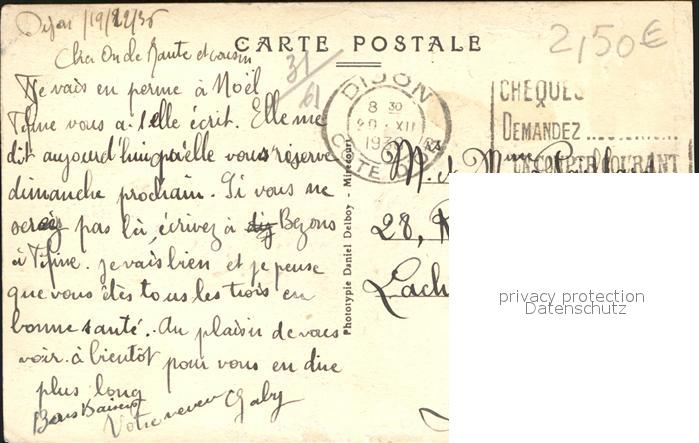 Dijon 19/12/36
Cher Oncle Tante et cousin
CARTE POSTALE
2,50€
31/61
Je vais en perme à Noël
Titine vous a-t-elle écrit. Elle me
dit aujourd'hui qu'elle vous réserve
dimanche prochain. Si vous ne
serez pas là, écrivez à Bezons
à Titine. je vais bien et je pense
que vous êtes tous les trois en
bonne santé. Au plaisir de vous
voir à bientôt pour vous en dire
plus long
Bons Baisers
Votre neveu Gaby
DIJON
8 30
20 XII
COTE D'OR
CHEQUES
DEMANDEZ
UN COMPTE COURANT
Phototypie Daniel Delboy - Mirecourt
M. et Mme
28, R
Lach
privacy protection
Datenschutz